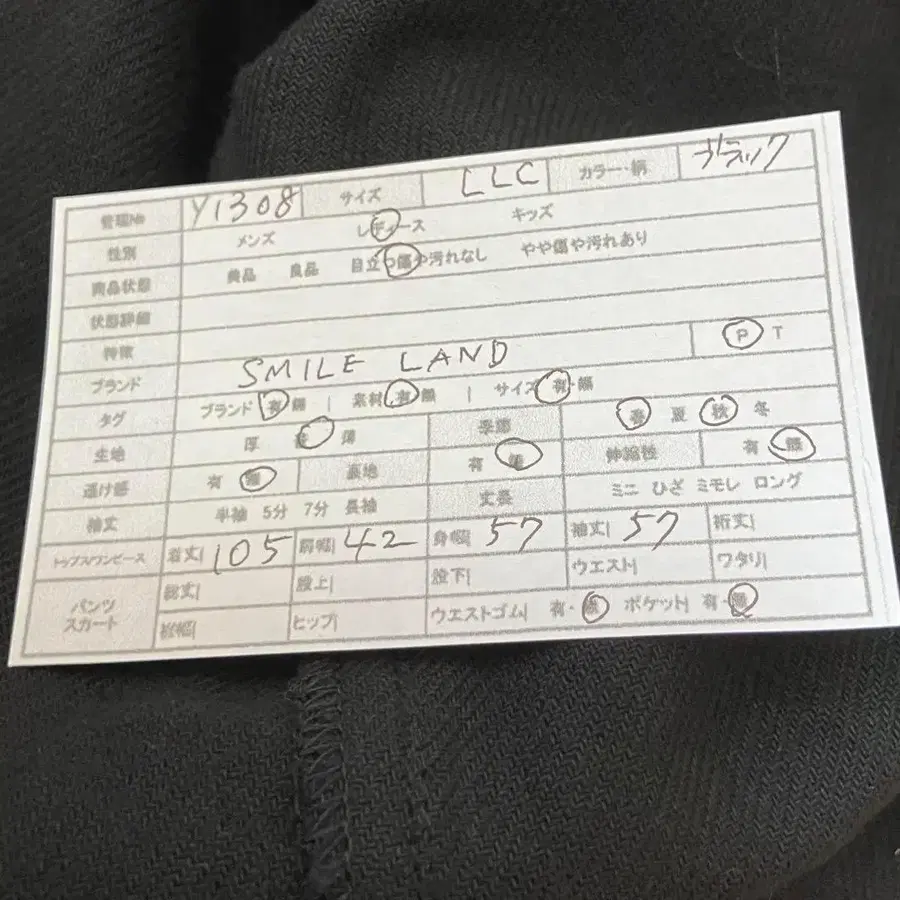 管理No Y1308 サイズ LLC カラー・柄 ブラック
性別 メンズ レディース キッズ
商品状態 美品 良品 目立つ傷や汚れなし やや傷や汚れあり
状態詳細
特徴 P T
ブランド SMILE LAND
タグ ブランド 有・無 | 素材 有・無 | サイズ 有・無
生地 厚 普 薄 季節 春 夏 秋 冬
透け感 有 無 裏地 有 無 伸縮性 有 無
袖丈 半袖 5分 7分 長袖 丈長 ミニ ひざ ミモレ ロング
トップス/ワンピース 着丈| 105 肩幅| 42 身幅| 57 袖丈| 57 裄丈|
パンツ スカート 総丈| 股上| 股下| ウエスト| ワタリ|
裾幅| ヒップ| ウエストゴム| 有・無 ポケット| 有・無